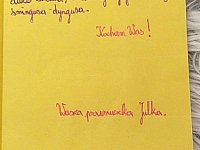 śmingusa-dyngusa.
Kocham Was!
Wasza prawnuczka Julka.